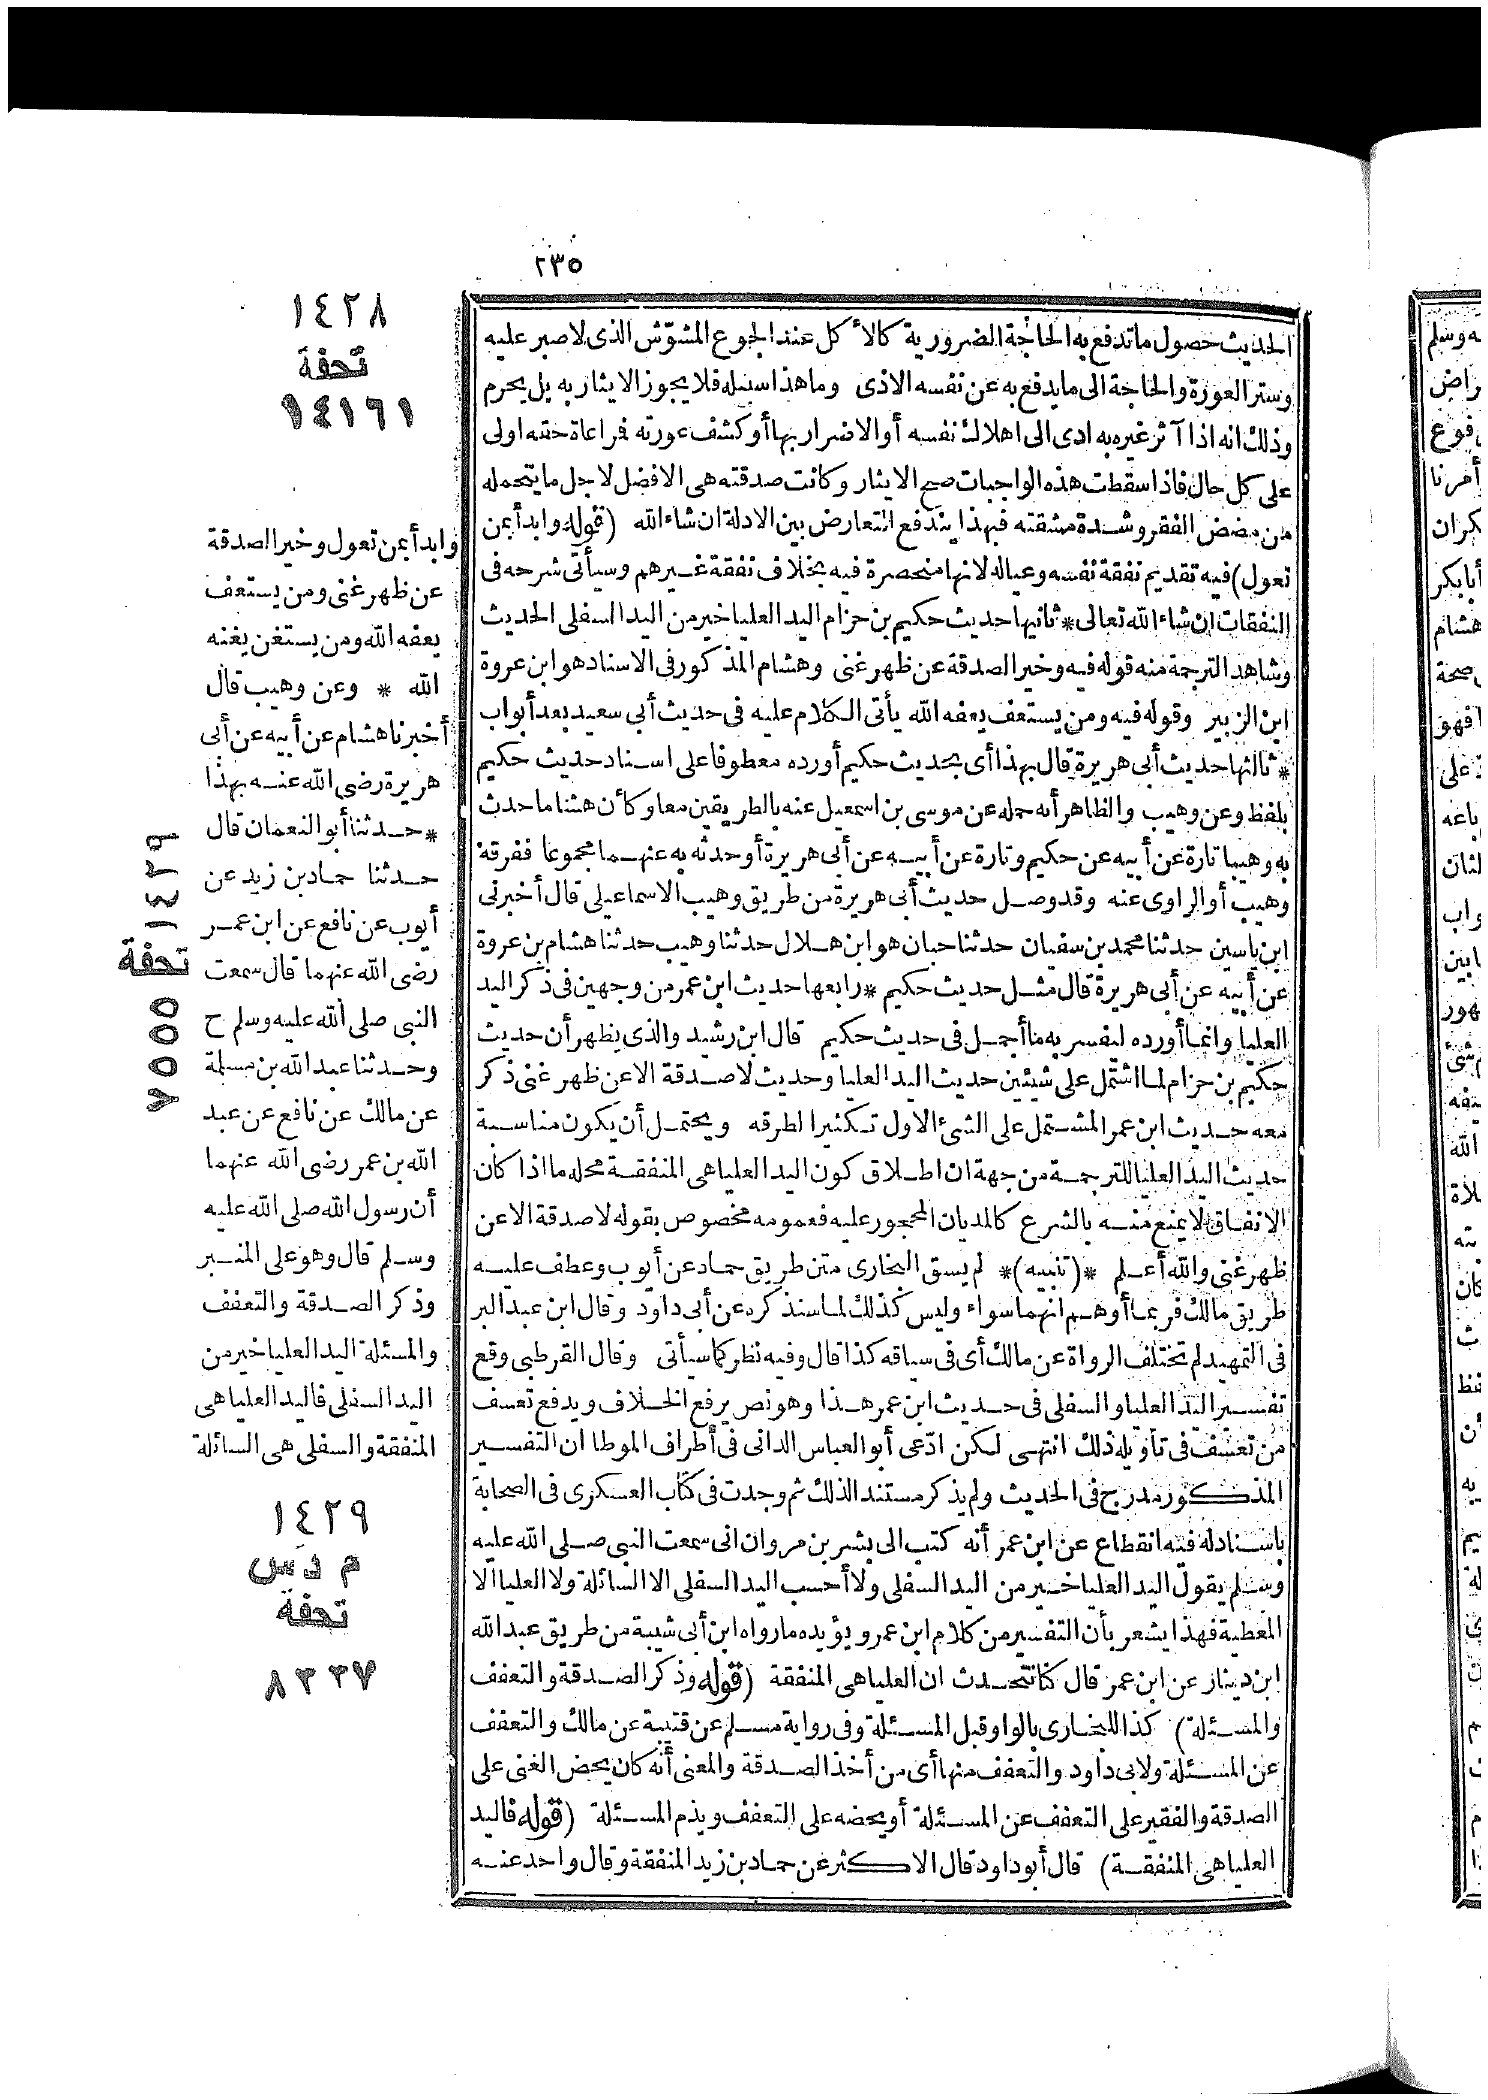 ٢٣٥
الحديث حصول ما تدفع به الحاجة الضرورية كالأكل عند الجوع المشوّش الذى لا صبر عليه
وستر العورة والحاجة الى ما يدفع به عن نفسه الاذى وما هذا سبيله فلا يجوز الايثار به بل يحرم
وذلك انه اذا آثر غيره به ادى الى اهلاك نفسه أو الاضرار بها أو كشف عورته فراعاة حقه اولى
على كل حال فاذا سقطت هذه الواجبات صح الايثار وكانت صدقته هى الافضل لاجل ما يتحمله
من مضض الفقر وشدة مشقته فبهذا يندفع التعارض بين الادلة ان شاء الله (قوله وابدأ بمن
تعول) فيه تقديم نفقة نفسه وعياله لانها منحصرة فيه بخلاف نفقة غيرهم وسيأتى شرحه فى
النفقات ان شاء الله تعالى * ثانيها حديث حكيم بن حزام اليد العليا خير من اليد السفلى الحديث
وشاهد الترجمة منه قوله فيه وخير الصدقة عن ظهر غنى وهشام المذكور فى الاسناد هو ابن عروة
ابن الزبير وقوله فيه ومن يستعفف يعفه الله يأتى الكلام عليه فى حديث أبى سعيد بعد أبواب
* ثالثها حديث أبى هريرة قال بهذا أى بحديث حكيم أورده معطوفا على اسناد حديث حكيم
بلفظ وعن وهيب والظاهر أنه حمله عن موسى بن اسمعيل عنه بالطريقين معا وكأن هشاما حدث
به وهيبا تارة عن أبيه عن حكيم وتارة عن أبيه عن أبى هريرة أو حدثه به عنهما مجموعا ففرقه
وهيب أو الراوى عنه وقد وصل حديث أبى هريرة من طريق وهيب الاسماعيلى قال أخبرنى
ابن ياسين حدثنا محمد بن سفيان حدثنا حبان هو ابن هلال حدثنا وهيب حدثنا هشام بن عروة
عن أبيه عن أبى هريرة قال مثل حديث حكيم * رابعها حديث ابن عمر من وجهين فى ذكر اليد
العليا وانما أورده ليفسر به ما أجمل فى حديث حكيم قال ابن رشيد والذى يظهر أن حديث
حكيم بن حزام لما اشتمل على شيئين حديث اليد العليا وحديث لا صدقة الا عن ظهر غنى ذكر
معه حديث ابن عمر المشتمل على الشئ الاول تكثيرا لطرقه ويحتمل أن يكون مناسبة
حديث اليد العليا للترجمة من جهة ان اطلاق كون اليد العليا هى المنفقة محله ما اذا كان
الانفاق لا يمنع منه بالشرع كالمديان المحجور عليه فعمومه مخصوص بقوله لا صدقة الا عن
ظهر غنى والله أعلم *(تنبيه)* لم يسق البخارى متن طريق حماد عن أيوب وعطف عليه
طريق مالك فربما أوهم انهما سواء وليس كذلك لما سنذكره عن أبى داود وقال ابن عبد البر
فى التمهيد لم تختلف الرواة عن مالك أى فى سياقه كذا قال وفيه نظر كما سيأتى وقال القرطبى وقع
تفسير اليد العليا والسفلى فى حديث ابن عمر هذا وهو نص يرفع الخلاف ويدفع تعسف
من تعسف فى تأويله ذلك انتهى لكن ادّعى أبو العباس الدانى فى أطراف الموطا ان التفسير
المذكور مدرج فى الحديث ولم يذكر مستندا لذلك ثم وجدت فى كتاب العسكرى فى الصحابة
باسناد له فيه انقطاع عن ابن عمر أنه كتب الى بشر بن مروان انى سمعت النبى صلى الله عليه
وسلم يقول اليد العليا خير من اليد السفلى ولا أحسب اليد السفلى الا السائلة ولا العليا الا
المعطية فهذا يشعر بأن التفسير من كلام ابن عمر ويؤيده ما رواه ابن أبى شيبة من طريق عبد الله
ابن دينار عن ابن عمر قال كنا نتحدث ان العليا هى المنفقة (قوله وذكر الصدقة والتعفف
والمسئلة) كذا للبخارى بالواو قبل المسئلة وفى رواية مسلم عن قتيبة عن مالك والتعفف
عن المسئلة ولابى داود والتعفف منها أى من أخذ الصدقة والمعنى أنه كان يحض الغنى على
الصدقة والفقير على التعفف عن المسئلة أو يحضه على التعفف ويذم المسئلة (قوله فاليد
العليا هى المنفقة) قال أبو داود قال الاكثر عن حماد بن زيد المنفقة وقال واحد عنه
١٤٢٨
تحفة
١٤١٦١
وابدأ بمن تعول وخير الصدقة
عن ظهر غنى ومن يستعفف
يعفه الله ومن يستغن يغنه
الله * وعن وهيب قال
أخبرنا هشام عن أبيه عن أبى
هريرة رضى الله عنه بهذا
* حدثنا أبو النعمان قال
حدثنا حماد بن زيد عن
أيوب عن نافع عن ابن عمر
رضى الله عنهما قال سمعت
النبى صلى الله عليه وسلم ح
وحدثنا عبد الله بن مسلمة
عن مالك عن نافع عن عبد
الله بن عمر رضى الله عنهما
أن رسول الله صلى الله عليه
وسلم قال وهو على المنبر
وذكر الصدقة والتعفف
والمسئلة اليد العليا خير من
اليد السفلى فاليد العليا هى
المنفقة والسفلى هى السائلة
١٤٢٩
م د س
تحفة
٨٣٣٧
١٤٢٩
تحفة
٧٥٥٥